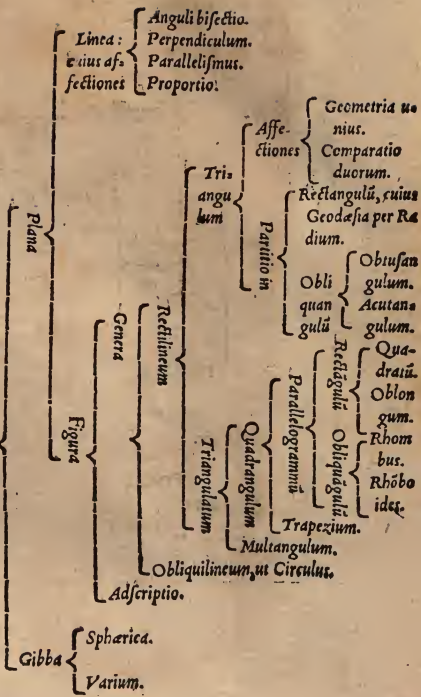 Plana
Linea:
cuius af-
fectiones
Anguli bisectio.
Perpendiculum.
Parallelismus.
Proportio.
Figura
Genera
Rectilineum
Tri-
angu
lum
Affe-
ctiones
Geometria u-
nius.
Comparatio
duorum.
Partitio in
Rectangulũ, cuius
Geodæsia per Ra
dium.
Obli
quan
gulũ
Obtusan
gulum.
Acutan-
gulum.
Triangulatum
Quadrangulum
Parallelogrammũ
Rectãgulũ
Qua-
dratũ.
Oblon
gum.
Obliquãgulũ
Rhom
bus.
Rhõbo
ides.
Trapezium.
Multangulum.
Obliquilineum, ut Circulus.
Adscriptio.
Gibba
Sphærica.
Varium.